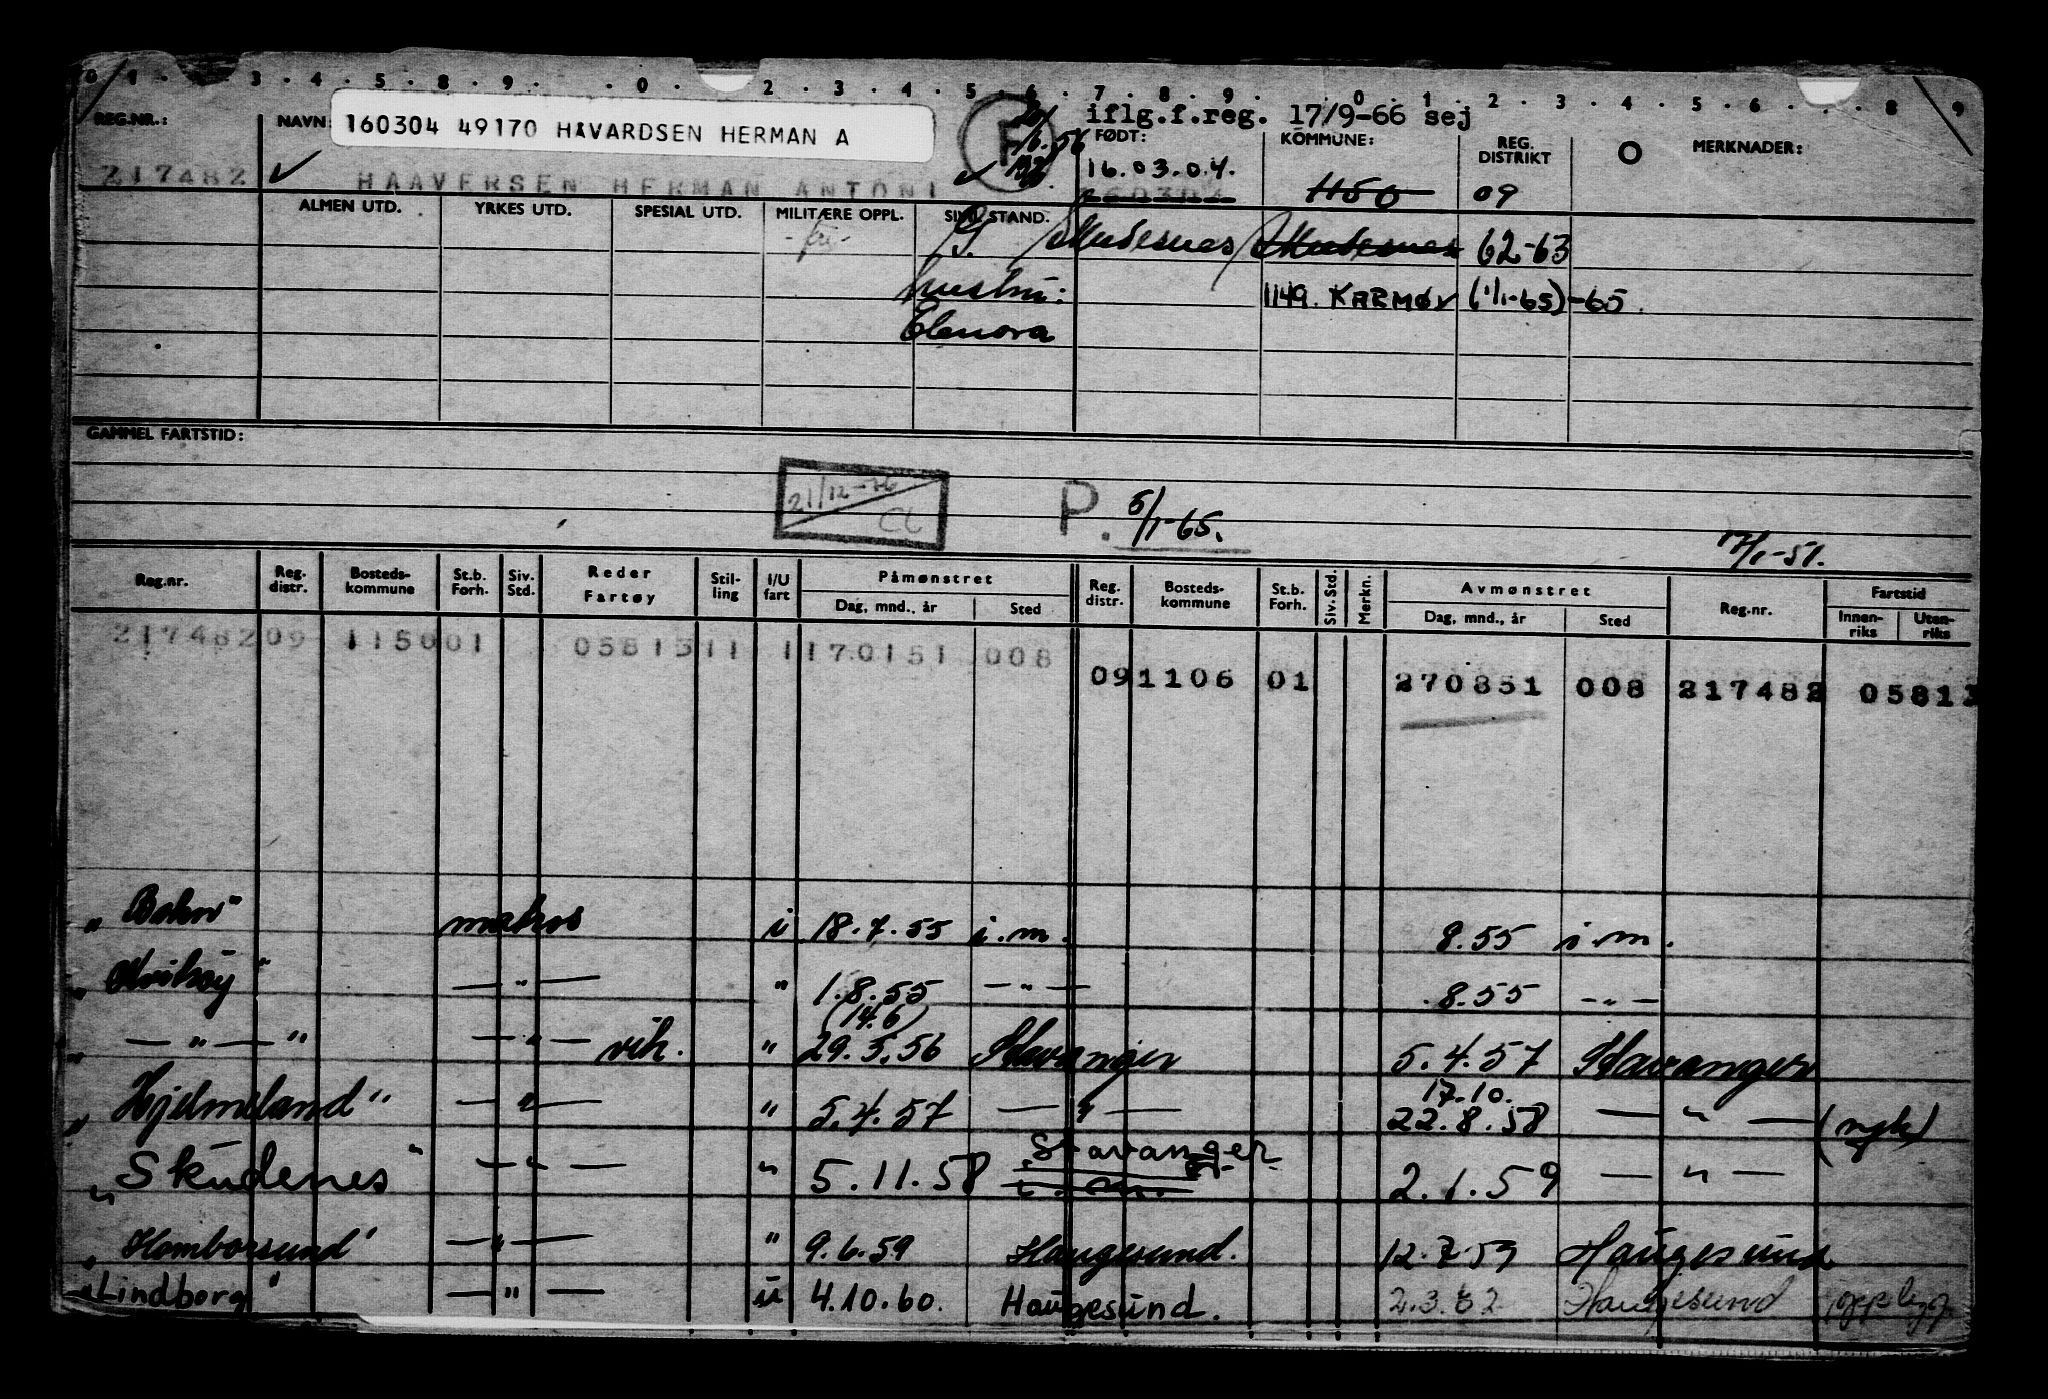 0 1 . . 3 . 4 . 5 . 8 . 9 . . 0 . 2 . 3 . 4 . 5 . 6 . 7 . 8 . 9 . . 0 . 1 . 2 . 3 . 4 . 5 . 6 . . 8 9
iflg.f.reg. 17/9-66 sej
REG.NR.: NAVN: 160304 49170 HAVARDSEN HERMAN A FØDT: KOMMUNE: REG. DISTRIKT O MERKNADER:
217482 ✓ HAAVERSEN HERMAN ANTONI ✓ 16.03.04. 1150 09
ALMEN UTD. YRKES UTD. SPESIAL UTD. MILITÆRE OPPL. SIVIL STAND.
G. Skudesnes Skudesnes 62-63
hustru: 1149. KARMØY (1/1-65)-65.
Elenora
GAMMEL FARTSTID:
21/12-76 CL P. 5/1-65.
17/1-51.
Reg.nr. Reg. distr. Bosteds-kommune St.b. Forh. Siv. Std. Reder Fartøy Stil-ling I/U fart Påmønstret Dag, mnd., år Sted Reg. distr. Bosteds-kommune St.b. Forh. Siv. Std. Merkn. Avmønstret Dag, mnd., år Sted Reg.nr. Fartstid Innen-riks Uten-riks
217482 09 1150 01 05813 11 1 170151 008
09 1106 01 270851 008 217482 05813
" " matros i 18.7.55 i.m. 8.55 i.m.
" Kvitsøy " — " — " 1.8.55 — " — .8.55 — " —
(14.6)
" — " — " — " — vik. " 29.5.56 Stavanger 5.4.57 Stavanger
17.10.
" Hjelmeland " — " — " 5.4.57 — " — 22.8.58 — " — (mgk)
Stavanger
" Skudenes " — " — " 5.11.58 i.m. 2.1.59 — " —
" Homborsund " — " — " 9.6.59 Haugesund. 12.7.59 Haugesund
" Lindborg " — " — u 4.10.60. Haugesund. 2.3.62 Haugesund